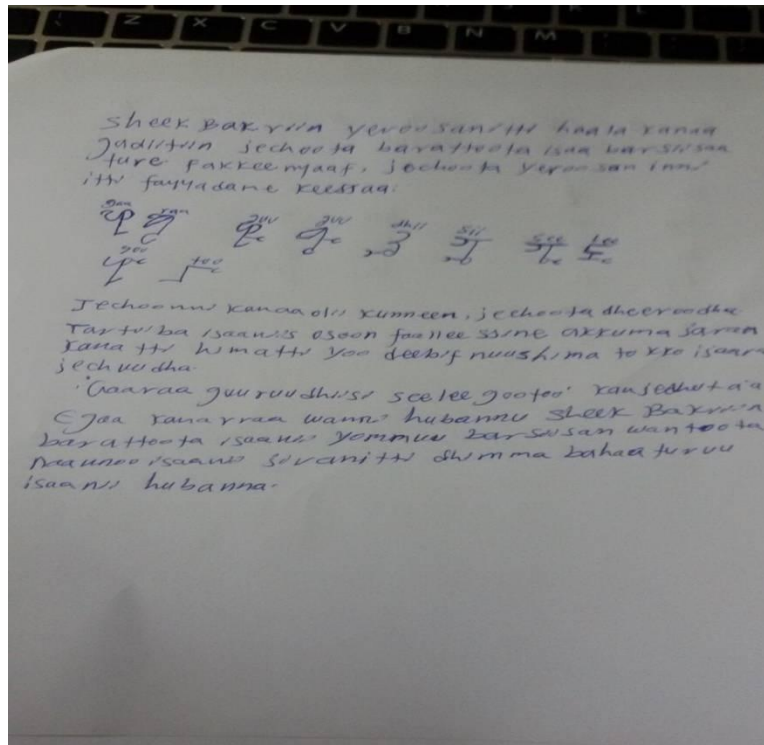 Z X C V B N M
Sheek Bakriin yeroosanitti haala kanaa
gadiitiin jechoota barattoota isaa barsiisaa
ture. Fakkeenyaaf, jechoota yeroosan inni
itti fayyadame keessaa:
gaa raa guu ruu dhii sii see lee
goo too
Jechoonni kanaa olii kunneen, jechoota dheeroodha
Tartiiba isaaniis osoon faallee ssine akkuma saran
kanatti himatti yoo deebif nuu shima tokko isaara
jechuudha.
"Gaaraa guuruudhiisi seelee gootoo" kan jedhuta'a
Egaa kanarraa wanni hubannu Sheek Bakriin
barattoota isaanii yommuu barsiisan wantoota
naannoo isaanii siranitti dhimma bahaa turuu
isaanii hubanna.